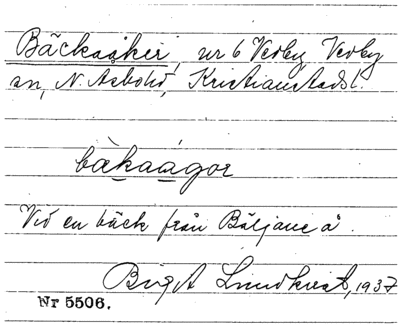 Bäckaåker, nr 6 Vedby Vedby
sn, N. Åsbo hd, Kristianstads l.
bäkaågor
Vid en bäck från Bäljane å.
Birgit Lundkvist, 1937
Nr 5506.